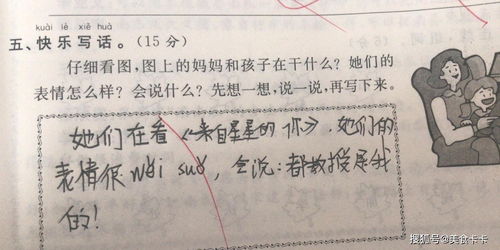 kuài lè xiě huà
五、快乐写话。(15分)
仔细看图,图上的妈妈和孩子在干什么?她们的
表情怎么样?会说什么?先想一想,说一说,再写下来。
她们在看《来自星星的你》.她们的
表情很wěi suǒ,会说:都教授是我
的!
搜狐号@美食卡卡